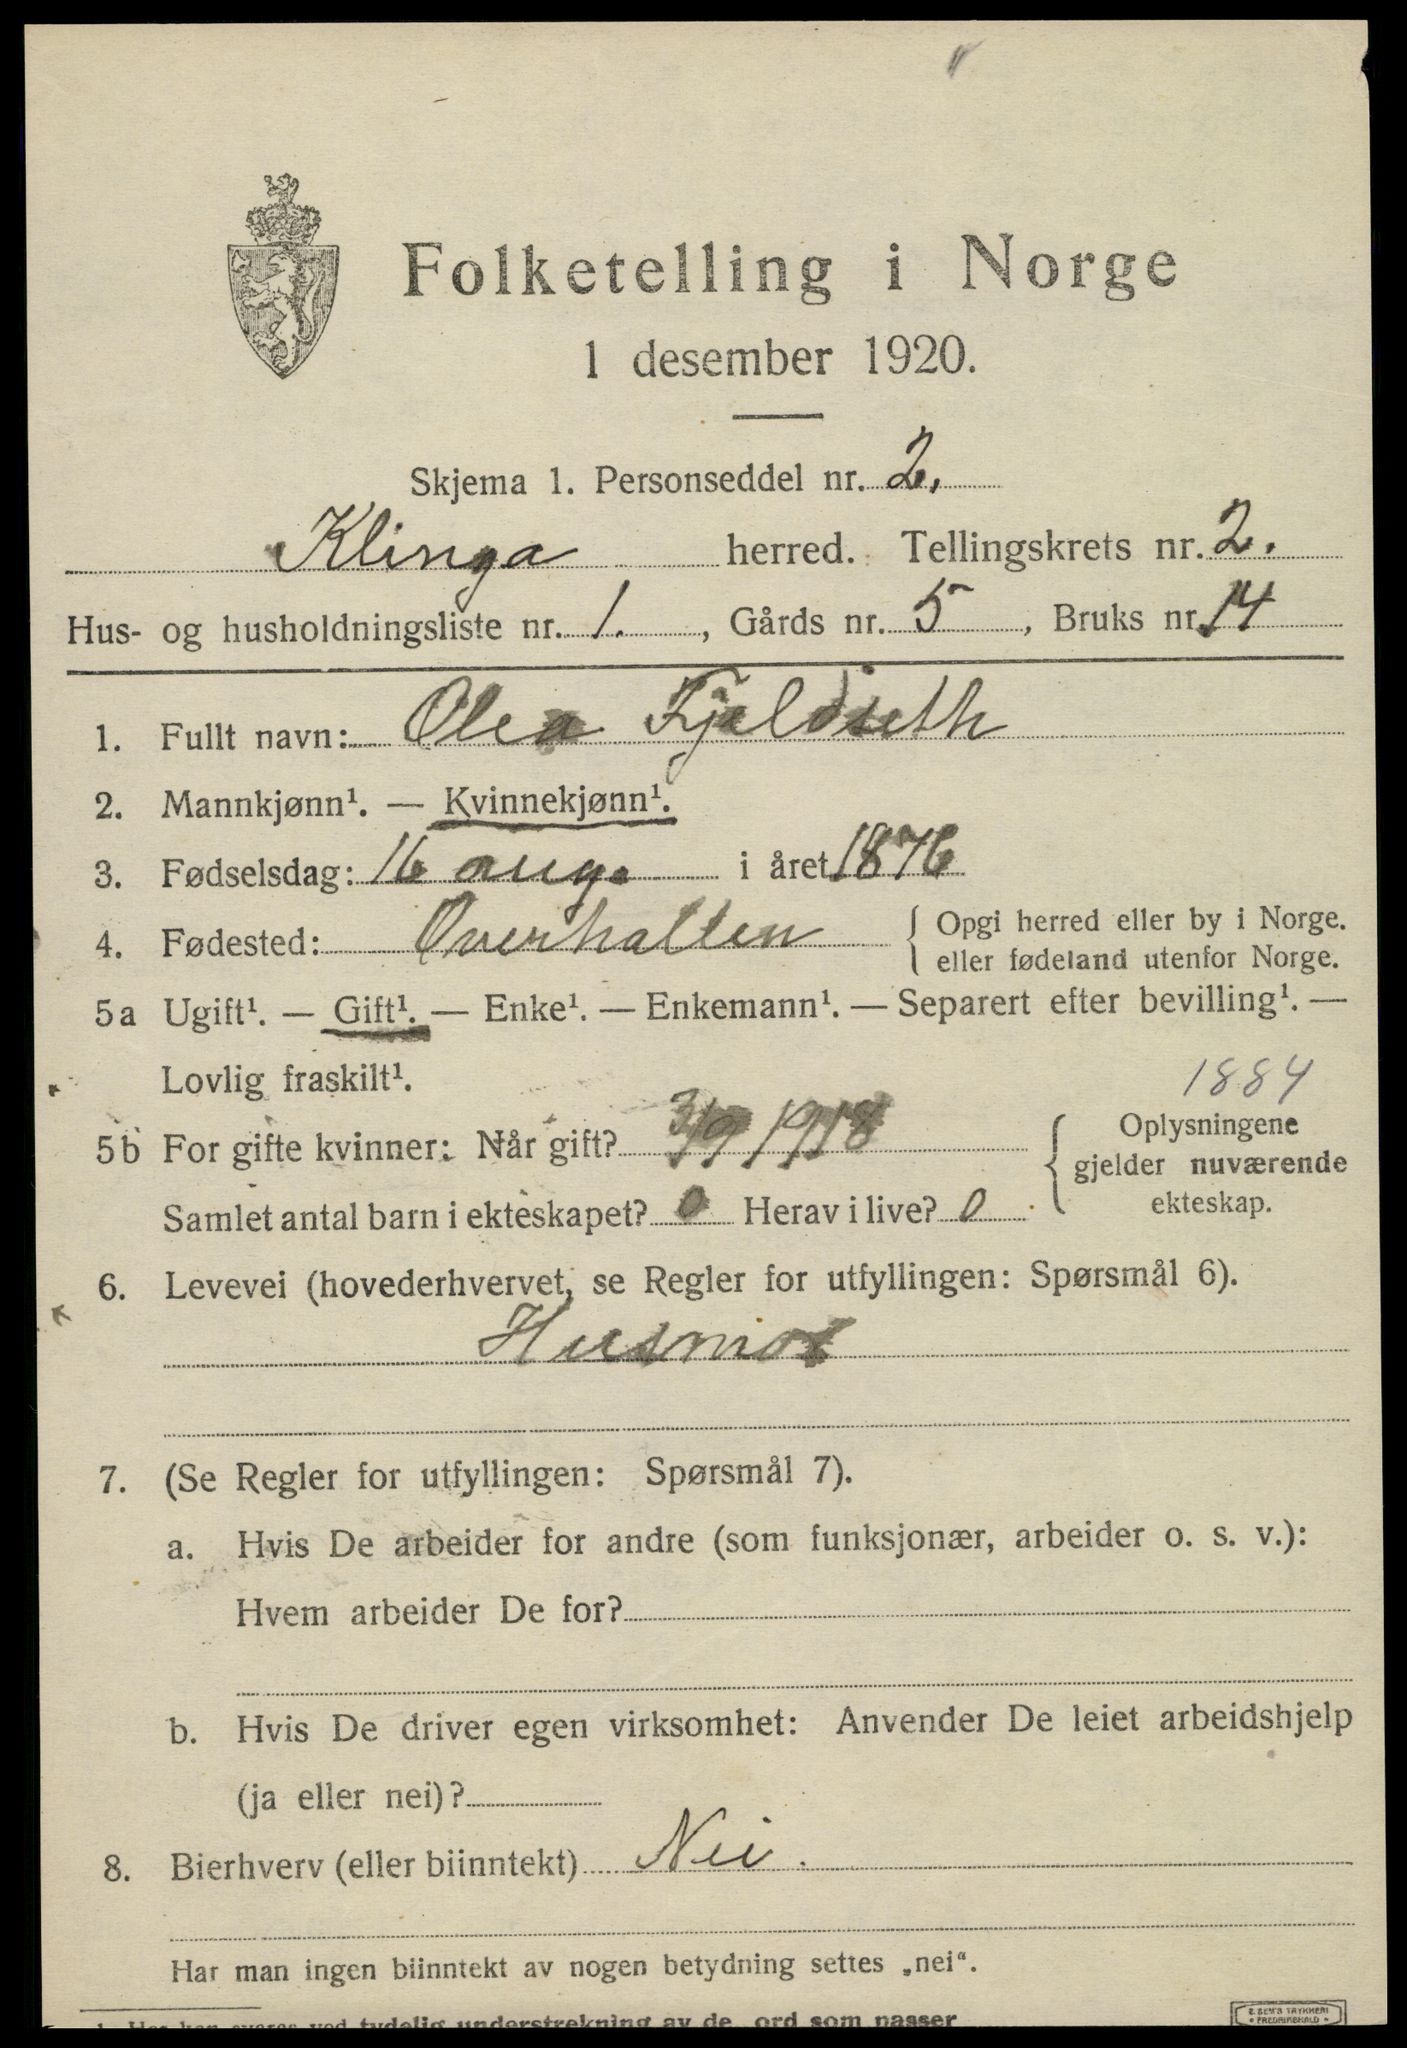 Folketelling i Norge
1 desember 1920.
Skjema 1. Personseddel nr. 2.
Klinga herred. Tellingskrets nr. 2.
Hus- og husholdningsliste nr. 1. , Gårds nr. 5 , Bruks nr. 14
1. Fullt navn: Olea Fjeldseth
2. Mannkjønn¹. — Kvinnekjønn¹.
3. Fødselsdag: 16 aug. i året 1876
4. Fødested: Overhallen { Opgi herred eller by i Norge.
eller fødeland utenfor Norge.
5a Ugift¹. — Gift¹. — Enke¹. — Enkemann¹. — Separert efter bevilling¹. —
Lovlig fraskilt¹.
1884
5b For gifte kvinner: Når gift? 3/9 1918 { Oplysningene
gjelder nuværende
ekteskap.
Samlet antal barn i ekteskapet? 0 Herav i live? 0
6. Levevei (hovederhvervet, se Regler for utfyllingen: Spørsmål 6).
Husmor
7. (Se Regler for utfyllingen: Spørsmål 7).
a. Hvis De arbeider for andre (som funksjonær, arbeider o. s. v.):
Hvem arbeider De for?
b. Hvis De driver egen virksomhet: Anvender De leiet arbeidshjelp
(ja eller nei)?
8. Bierhverv (eller biinntekt) Nei.
Har man ingen biinntekt av nogen betydning settes „nei“.
1. Her kan svares ved tydelig understrekning av de ord som passer
E. SEM'S TRYKKERI
FREDRIKSHALD